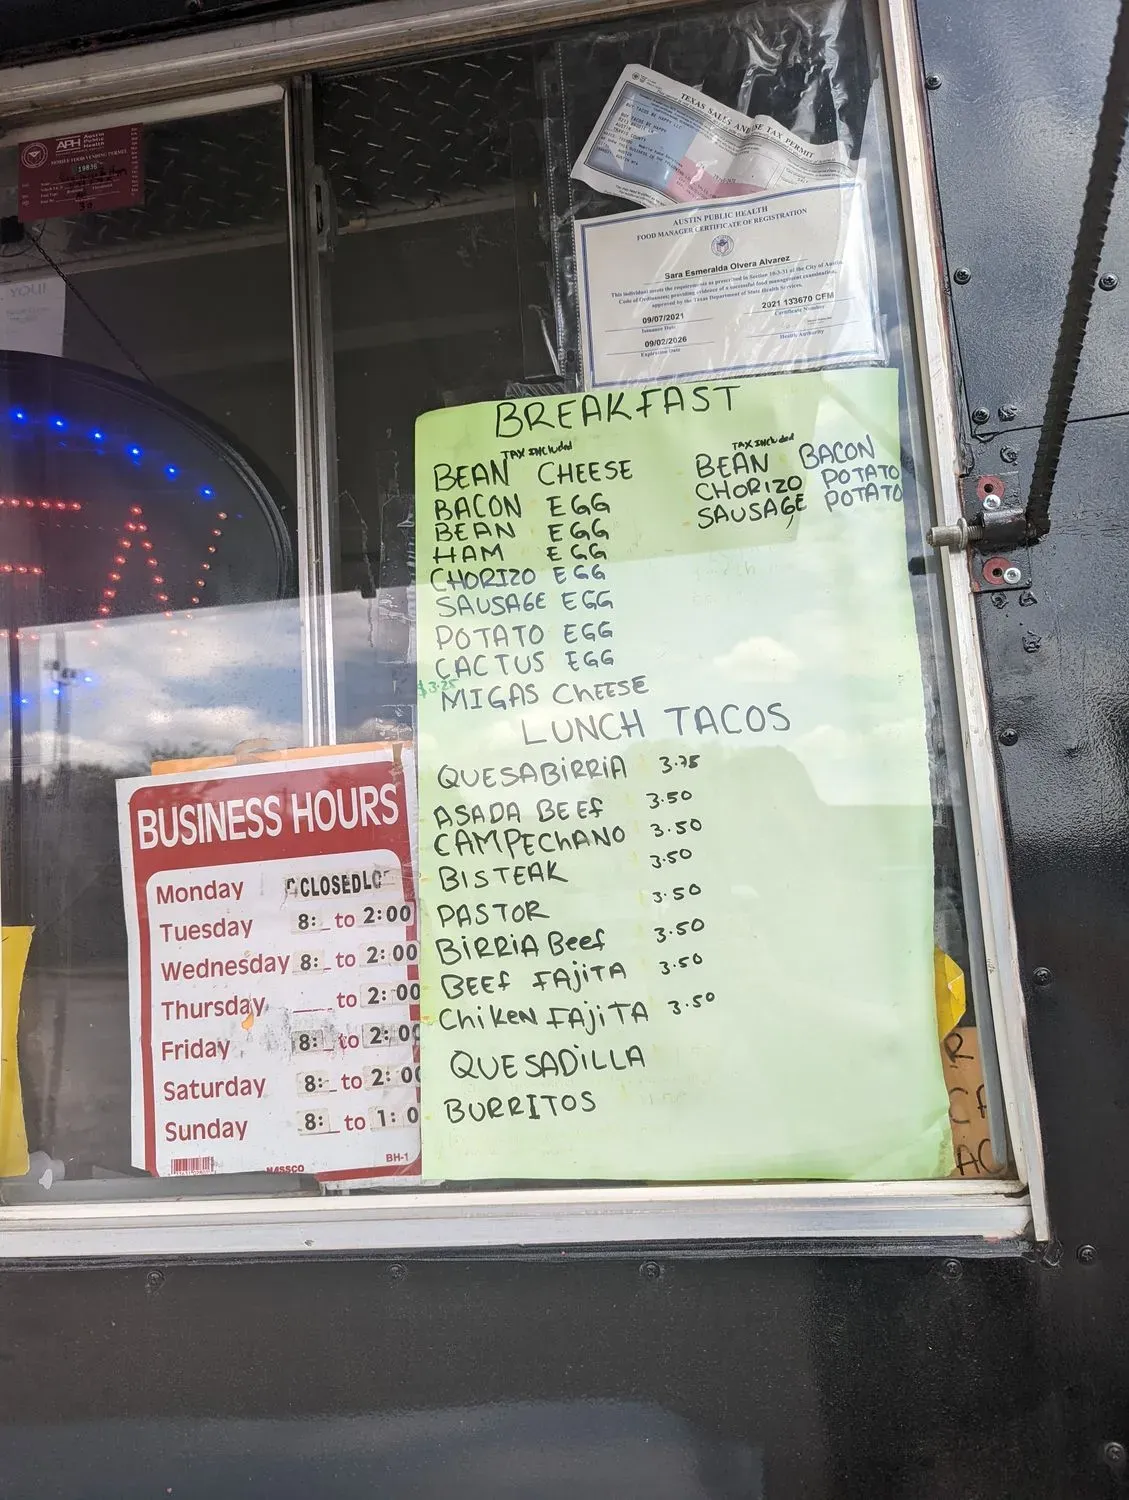 APH Austin Public Health
MOBILE FOOD VENDING PERMIT
19836
YOU!
TEXAS SALES AND USE TAX PERMIT
AUSTIN PUBLIC HEALTH
FOOD MANAGER CERTIFICATE OF REGISTRATION
Sara Esmeralda Olvera Alvarez
This individual meets the requirements as prescribed in Section 10-3-31 of the City of Austin
Code of Ordinances; providing evidence of a successful food management examination,
approved by the Texas Department of State Health Services.
09/07/2021
Issuance Date
2021 133670 CFM
Certificate Number
09/02/2026
Expiration Date
Health Authority
BREAKFAST
TAX Included
BEAN CHEESE
BACON EGG
BEAN EGG
HAM EGG
CHORIZO EGG
SAUSAGE EGG
POTATO EGG
CACTUS EGG
$3.25
MIGAS CHEESE
TAX Included
BEAN BACON
CHORIZO POTATO
SAUSAGE POTATO
LUNCH TACOS
QUESABIRRIA 3.75
ASADA BEEf 3.50
CAMPEChANO 3.50
BISTEAK 3.50
PASTOR 3.50
BIRRIA Beef 3.50
BEEf FAjiTA 3.50
ChiKeN FAjiTA 3.50
QUESADILLA
BURRITOS
BUSINESS HOURS
Monday CLOSED
Tuesday 8: to 2:00
Wednesday 8: to 2:00
Thursday to 2:00
Friday 8: to 2:00
Saturday 8: to 2:00
Sunday 8: to 1:0
BH-1